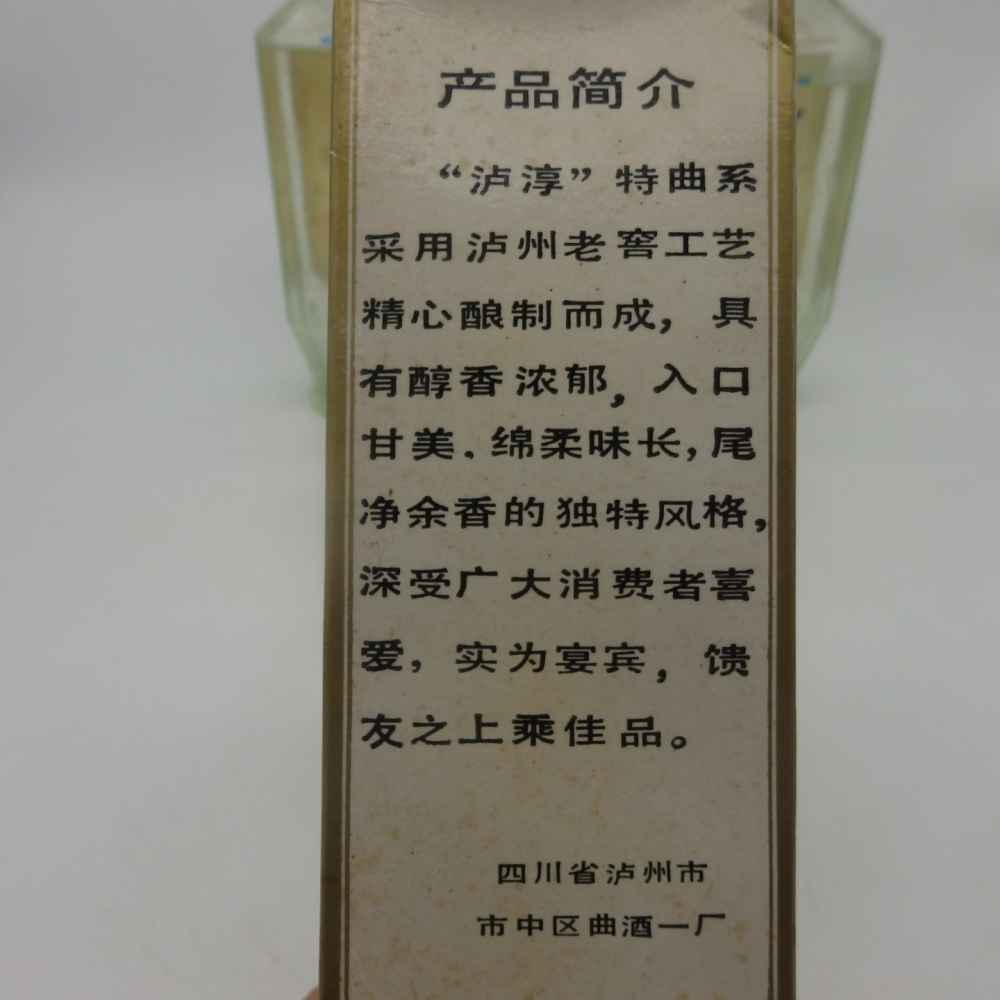 产品简介
“泸淳”特曲系
采用泸州老窖工艺
精心酿制而成，具
有醇香浓郁，入口
甘美．绵柔味长，尾
净余香的独特风格，
深受广大消费者喜
爱，实为宴宾，馈
友之上乘佳品。
四川省泸州市
市中区曲酒一厂